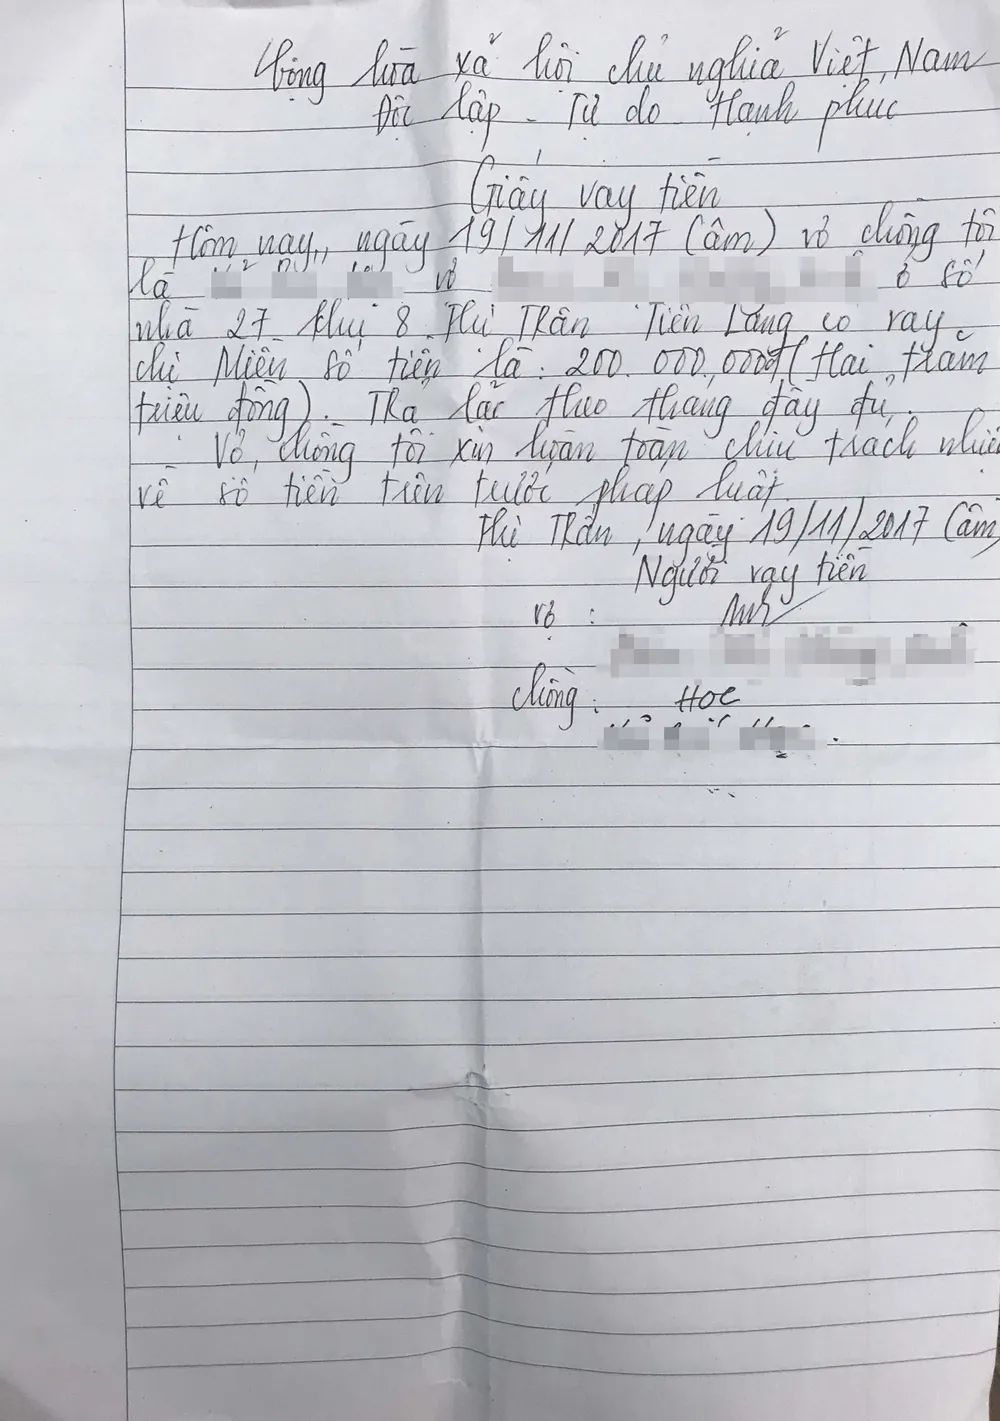 Cộng hòa xả hội chủ nghiả Việt Nam
Độc lập - Tự do Hạnh phúc
Giấy vay tiền
Hôm nay, ngày 19/11/2017 (âm) vợ chồng tôi
là vợ ở số
nhà 27 khu 8 Thị Trấn Tiên Lãng có vay
chị Miền số tiền là: 200.000.000đ (Hai trăm
triệu đồng). Trả lãi theo tháng đầy đủ.
Vợ, chồng tôi xin hoàn toàn chịu trách nhiệ
về số tiền trên trước pháp luật.
Thị Trấn, ngày 19/11/2017 (âm
Người vay tiền
vợ :
chồng : Học